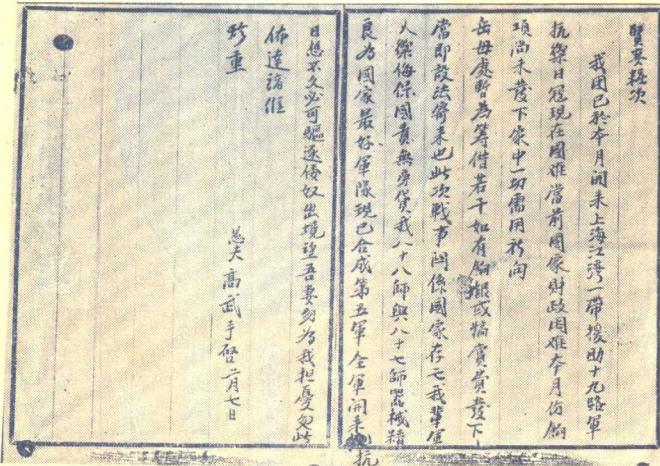 賢妻粧次
我團已於本月開來上海江灣一帶援助十九路軍
抗禦日寇現在國難當前國家財政困難本月份餉
項尚未發下家中一切需用祈向
岳母處暫為籌借若干如有餉銀或犒賞費發下
當即設法寄來也此次戰事關係國家存亡我輩軍
人禦侮保國責無旁貸我八十八師與八十七師器械精
良為國家最好軍隊現已合成第五軍全軍開來抗
日想不久必可驅逐倭奴出境望吾妻勿為我担憂匆此
佈達諸維
珍重
愚夫高武手啓二月七日